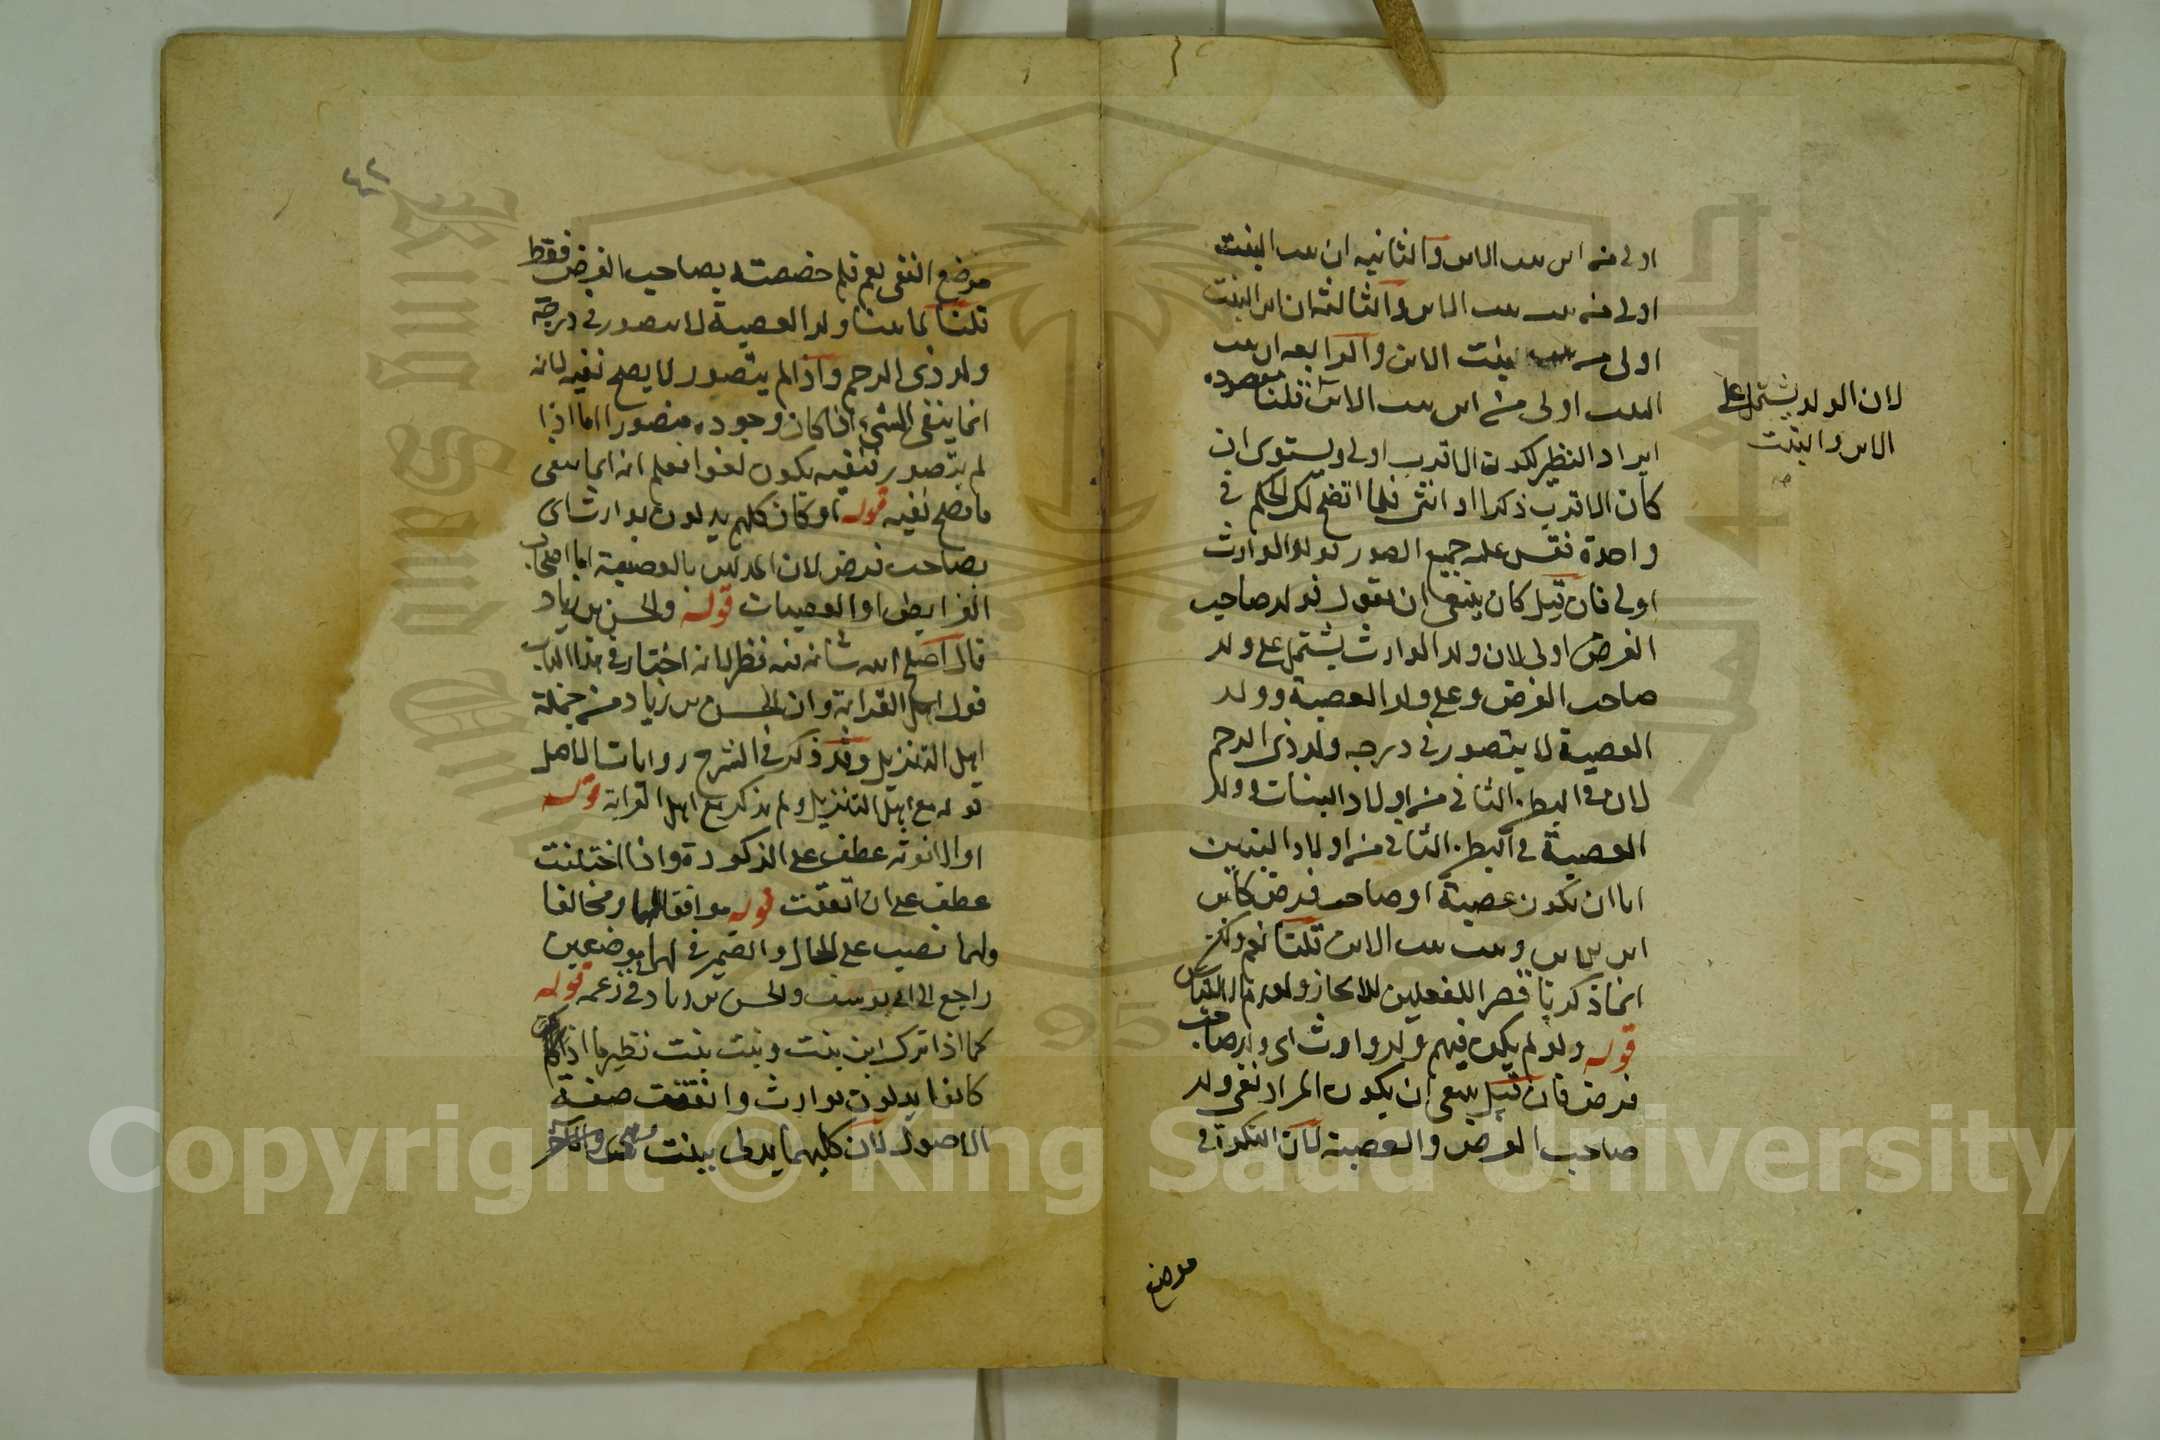 اولى من ابن بنت الابن والثانيه ان بنت البنت
اولى من بنت بنت الابن والثالثة ان ابن البنت
اولى من بنت الابن والرابعه ان بنت
البنت اولى من ابن بنت الابن قلنا مقصوده
ايراد النظير لكون الاقرب اولى ويستوى ان
كان الاقرب ذكرا او انثى فلما اتضح لك الحكم في
واحدة فقس عليه جميع الصور قوله فولد الوارث
اولى فان قيل كان ينبغي ان يقول فولد صاحب
الفرض اولى لان ولد الوارث يشتمل على ولد
صاحب الفرض وعلى ولد العصبة وولد
العصبة لا يتصور في درجه ولد ذى الرحم
لان في البطن الثاني من اولاد البنات وولد
العصبة في البطن الثاني من اولاد البنين
اما ان يكون عصبة او صاحب فرض كابن
ابن الابن وبنت بنت الابن قلنا نعم ولكن
انما ذكرنا
قوله ولو لم يكن فيهم ولد وارث اى ولد صاحب
فرض فان قيل ينبغي ان يكون المراد نفي ولد
صاحب الفرض والعصبة لان النكرة في
لان الولد يشتمل على
الابن والبنت
صح
موضع
٤٢
موضع النفي يعم فلم خصصته بصاحب الفرض فقط
قلنا لما بينا ولد العصبة لا يتصور في درجة
ولد ذى الرحم واذا لم يتصور لا يصح نفيه لانه
انما ينفى الشيء اذا كان وجوده متصورا اما اذا
لم يتصور فنفيه يكون لغوا فعلم انه انما ينفى
ما يصح نفيه قوله او كان كلهم يدلون بوارث اى
بصاحب فرض لان المدلين بالعصبة اما اصحاب
الفرايض او العصبات قوله والحسن بن زياد
قال اصلح الله شانه فيه نظر لانه اختار في هذا الباب
قول اهل القرابة وان الحسن بن زياد من جملة
اهل التنزيل وقد ذكر في الشرح روايات لاهل
قوله مع اهل التنزيل ولم يذكر مع اهل القرابة قوله
او الانوثه عطف على الذكورة واذا اختلفت
عطف على ان اتفقت قوله موافقا لهما ومخالفا
ولهما نصيب على الحال والضمير في لهما في موضعين
راجع الى ابي يوسف والحسن بن زياد في زعمه قوله
كما اذا ترك ابن بنت وبنت بنت نظير ما اذا
كانوا يدلون بوارث واتفقت صفة
الاصول لان كليهما يدلى ببنت
Copyright © King Saud University
King Saud University
جامعة الملك سعود
1957